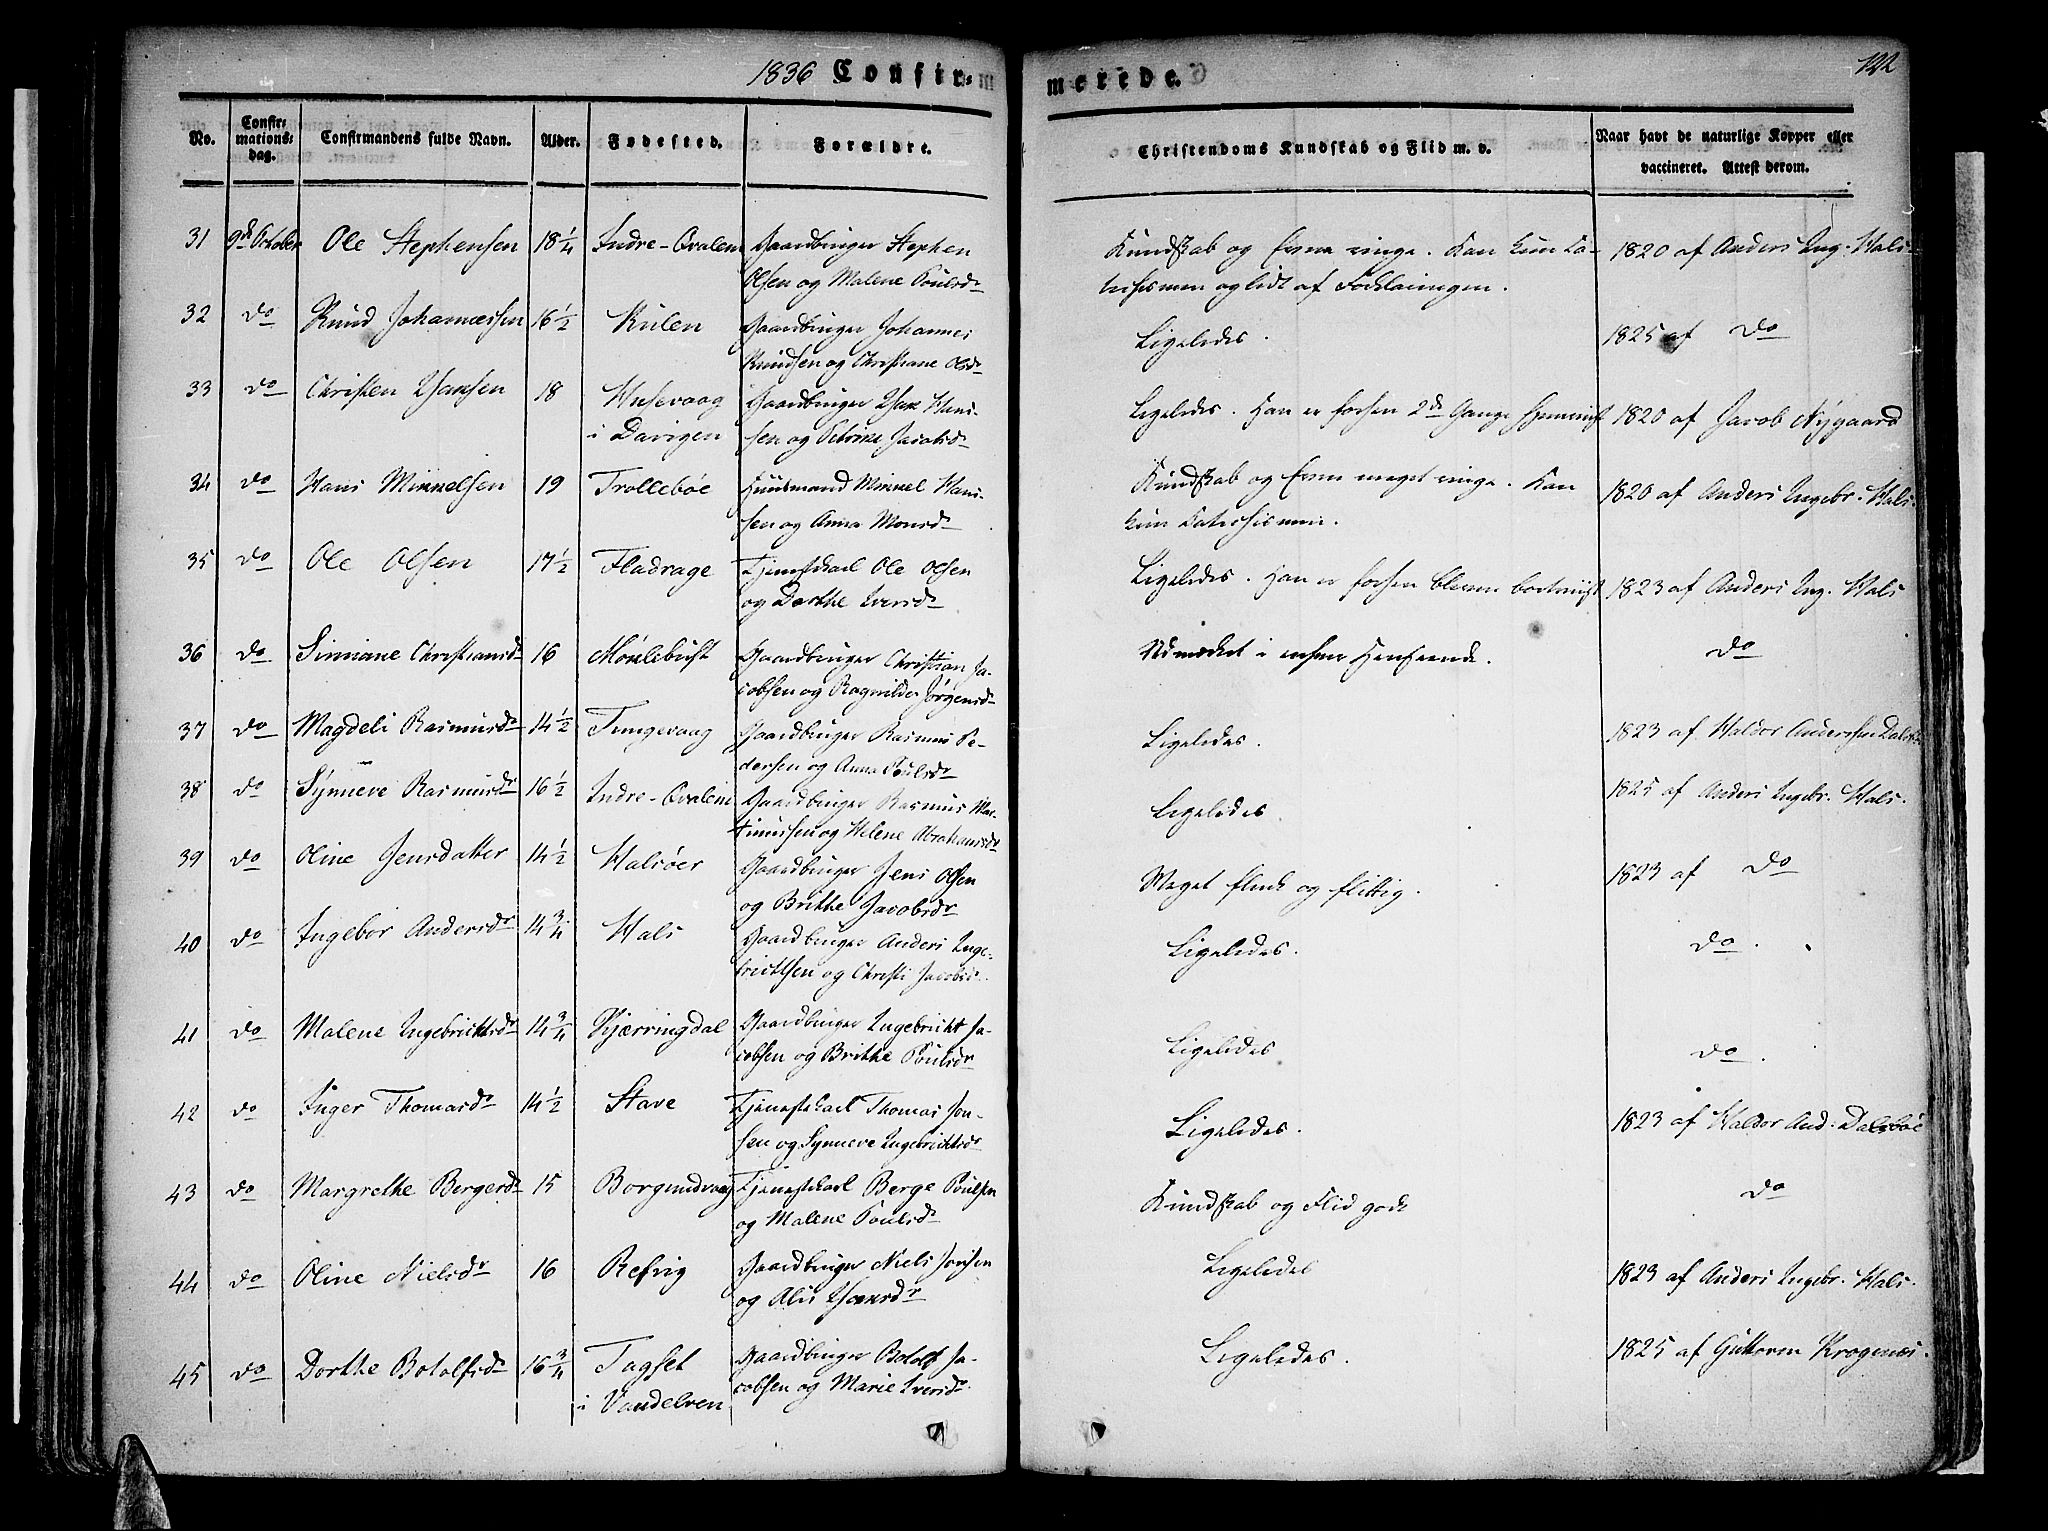 1836 Confir=
merede.
122
No.
Confir-
mations-
dag.
Confirmandens fulde Navn.
Alder.
Fødested.
Forældre.
Christendoms Kundskab og Flid m. v.
Naar havt de naturlige Kopper eller
vaccineret. Attest derom.
31 9de October Ole Stephensen 18 1/4 Indre-Qvalem Gaardbruger Stephen
Olsen og Malene Poulsdr
Kundskab og Evne ringe. Kan kun Ca-
techismen og lidt af Forklaringen.
1820 af Anders Ing. Hals
32 do Knud Johannessen 16 1/2 Kulen Gaardbruger Johannes
Knudsen og Christiane Olsdr
Ligeledes.
1825 af do
33 do Christen Hansen 18 Husevaag Gaardbruger Hans Han-
i Davigen sen og Petrine Jacobsdr
Ligeledes. Han er forhen 2de Gange hjemvist
1820 af Jacob Nygaard
34 do Hans Mikkelsen 19 Trolleböe Huusmand Mikkel Han-
sen og Anna Monsdr
Kundskab og Evne meget ringe. Kan
kun Catechismen.
1820 af Anders Ingebr. Hals.
35 do Ole Olsen 17 1/2 Fladrage Tjenestekarl Ole Olsen
og Dorthe Iversdr
Ligeledes. Han er forhen bleven bortviist
1823 af Anders Ing. Hals
36 do Siniane Christiansdr 16 Moulebust Gaardbruger Christian Ja-
cobsen og Ragnilde Jørgensdr
Udmærket i enhver Henseende.
do
37 do Magdeli Rasmusdr 14 1/2 Tungevaag Gaardbruger Rasmus Pe-
dersen og Anna Poulsdr
Ligeledes.
1823 af Haldor Anderssen
38 do Synneve Rasmusdr 16 1/2 Indre-Qvalem Gaardbruger Rasmus Mar-
tinussen og Helene Abrahamsdr
Ligeledes
1825 af Anders Ingebr. Hals.
39 do Oline Jensdatter 14 1/2 Halsöer Gaardbruger Jens Olsen
og Brithe Jacobsdr
Meget flink og flittig.
1823 af do
40 do Ingebor Andersdr 14 3/4 Hals Gaardbruger Anders Inge-
brictsen og Christi Jacobsdr
Ligeledes.
do.
41 do Malene Ingebrictsdr 14 3/4 Kjærringdal Gaardbruger Ingebricht Ja-
cobsen og Brithe Poulsdr
Ligeledes
do.
42 do Inger Thomasdr 14 1/2 Stave Tjenestekarl Thomas Jon-
sen og Synneve Ingebrictsdr
Ligeledes.
1823 af Haldor And: Dalsböe
43 do Margrethe Bergesdr 15 Borgundvaag Tjenestekarl Berge Poulsen
og Malene Poulsdr
Kundskab og Flid godt
do
44 do Oline Nielsdr 16 Refvig Gaardbruger Niels
og Alis Hansdr
Ligeledes
1823 af Anders Ingebr. Hals.
45 do Dorthe Botolfsdr 16 3/4 Tagset Gaardbruger Botolf Ja-
i Vandelven cobsen og Marie Iversdr
Ligeledes.
1825 af Guttorm Krogenæs.